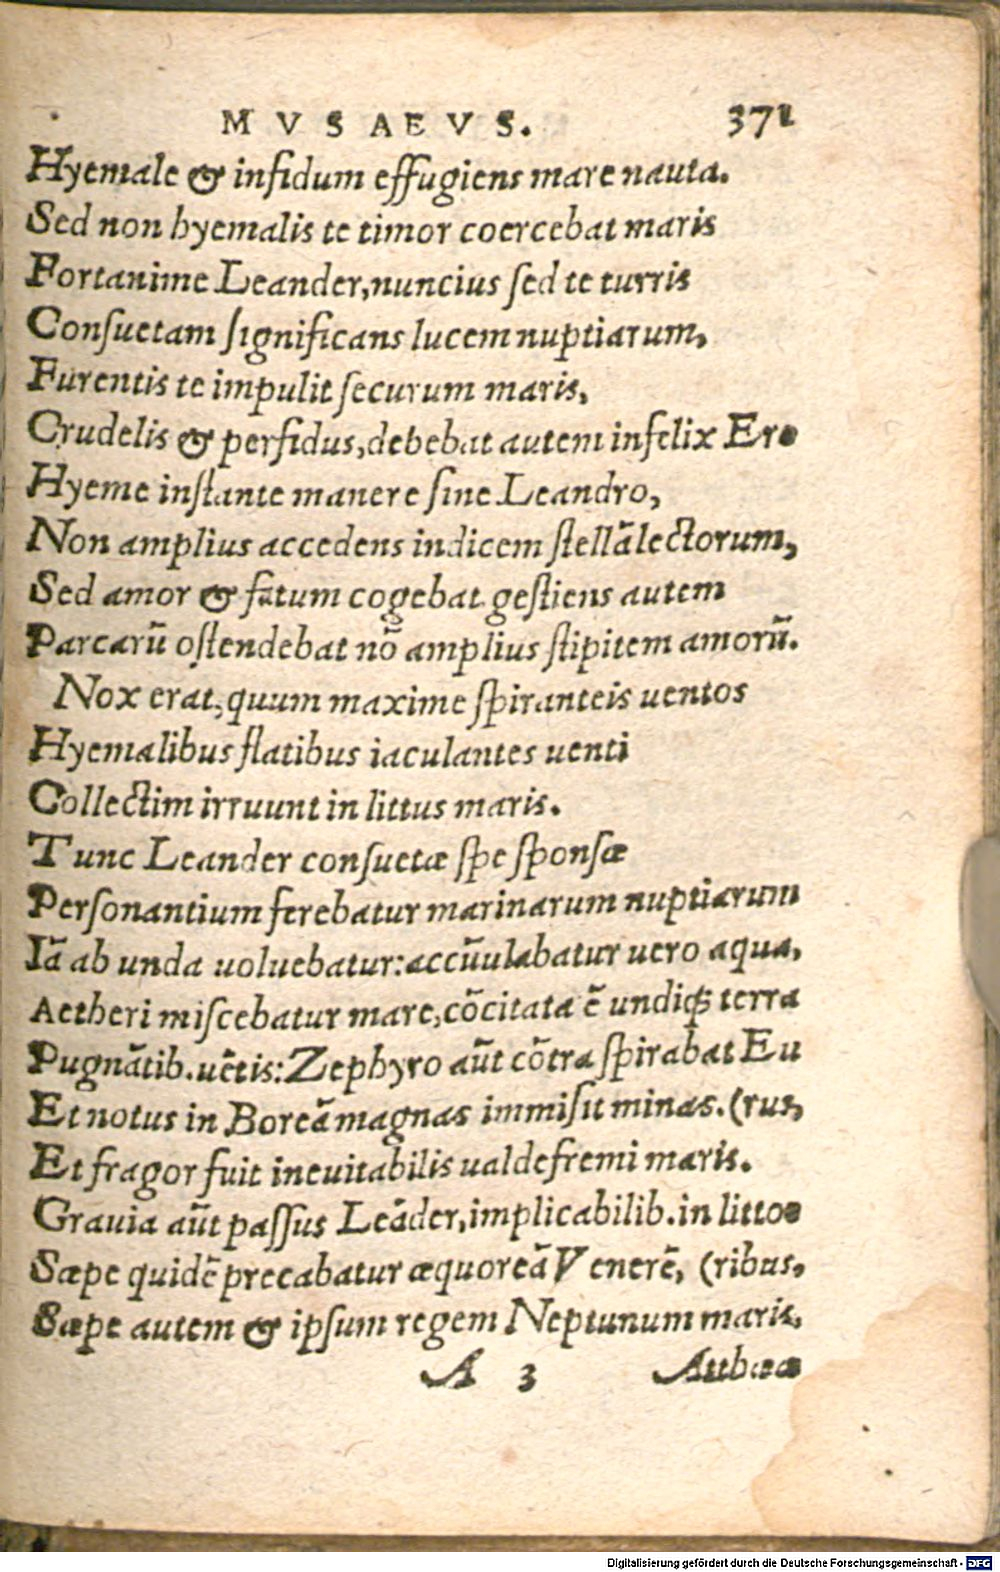 MVSAEVS. 371
Hyemale & infidum effugiens mare nauta.
Sed non hyemalis te timor coercebat maris
Fortanime Leander, nuncius sed te turris
Consuetam significans lucem nuptiarum,
Furentis te impulit securum maris,
Crudelis & perfidus, debebat autem infelix Ero
Hyeme instante manere sine Leandro,
Non amplius accedens indicem stellā lectorum,
Sed amor & fatum cogebat. gestiens autem
Parcarū ostendebat nō amplius stipitem amorū.
Nox erat, quum maxime spiranteis uentos
Hyemalibus flatibus iaculantes uenti
Collectim irruunt in littus maris.
Tunc Leander consuetæ spe sponsæ
Personantium ferebatur marinarum nuptiarum
Iā ab unda uoluebatur: accūulabatur uero aqua,
Aetheri miscebatur mare, cōcitata ē undiqꝫ terra
Pugnātib. uētis: Zephyro aūt cōtra spirabat Eu
Et notus in Boreā magnas immisit minas. (rus,
Et fragor fuit ineuitabilis ualdefremi maris.
Grauia aūt passus Leāder, implicabilib. in litto
Sæpe quidē precabatur æquoreā Venerē, (ribus,
Sæpe autem & ipsum regem Neptunum maris,
A 3 Atthææ
Digitalisierung gefördert durch die Deutsche Forschungsgemeinschaft - DFG